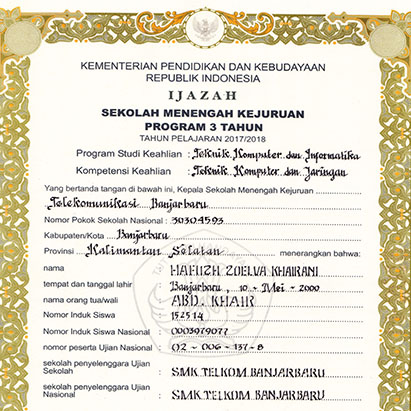 KEMENTERIAN PENDIDIKAN DAN KEBUDAYAAN
REPUBLIK INDONESIA
IJAZAH
SEKOLAH MENENGAH KEJURUAN
PROGRAM 3 TAHUN
TAHUN PELAJARAN 2017/2018
Program Studi Keahlian : Teknik Komputer dan Informatika
Kompetensi Keahlian : Teknik Komputer dan Jaringan
Yang bertanda tangan di bawah ini, Kepala Sekolah Menengah Kejuruan
Telekomunikasi Banjarbaru
Nomor Pokok Sekolah Nasional : 30304593
Kabupaten/Kota Banjarbaru
Provinsi Kalimantan Selatan menerangkan bahwa:
nama HAFIIZH ZOELVA KHAIRANI
tempat dan tanggal lahir Banjarbaru, 10 - Mei - 2000
nama orang tua/wali ABD. KHAIR
Nomor Induk Siswa 152514
Nomor Induk Siswa Nasional 0003979077
nomor peserta Ujian Nasional : 02 - 006 - 137 - 8
sekolah penyelenggara Ujian
Sekolah SMK TELKOM BANJARBARU
sekolah penyelenggara Ujian
Nasional SMK TELKOM BANJARBARU